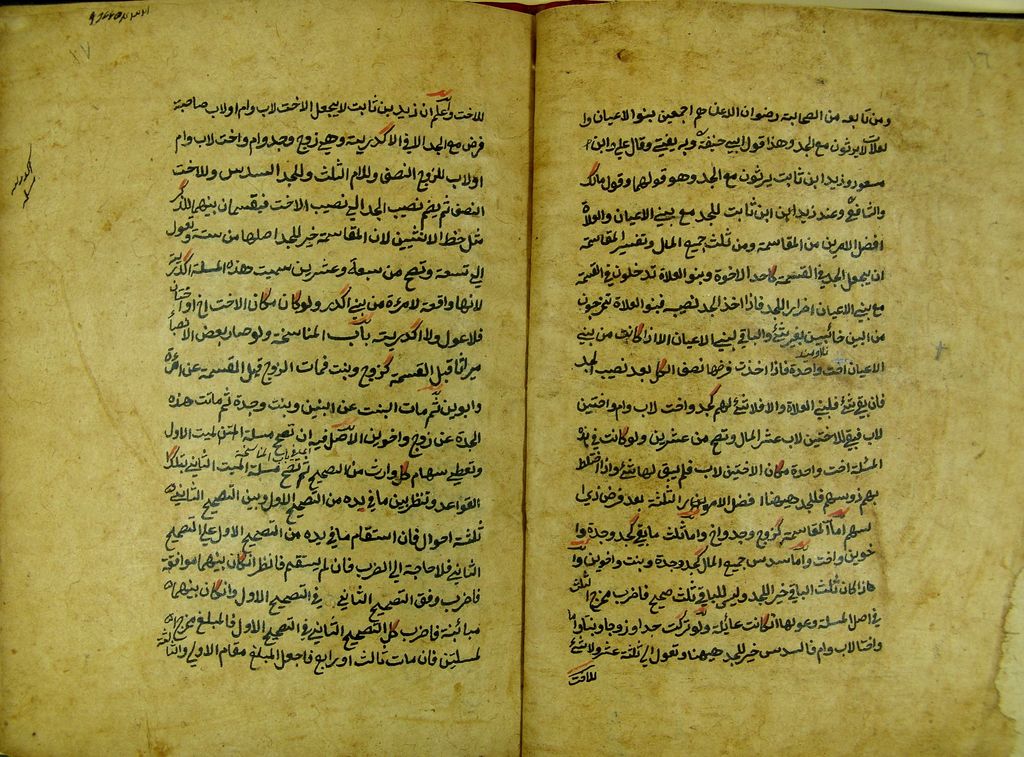 ومن تابعه من الصحابة رضوان الله عنهم اجمعين بنو الاعيان و
العلات لا يرثون مع الجد وهذا قول ابي حنيفة وبه يفتي وقال علي وابن
مسعود وزيد ابن ثابت يرثون مع الجد وهو قولهما وقول مالك
والشافعي وعند زيد ابن ثابت للجد مع بني الاعيان والعلاة
افضل الامرين من المقاسمة ومن ثلث جميع المال وتفسير المقاسمة
ان يجعل الجد في القسمة كاحد الاخوة وبنو العلاة تدخلون في القسمة
مع بني الاعيان اضرار للجد فاذا اخذ الجد نصيبه فبنو العلاة تخرجون
من البين خائبين بغير شئ والباقي لبني الاعيان الا اذا كانت من بني
الاعيان اخت واحدة فاذا اخذت فرضها نصف الكل بعد نصيب الجد
فان بقي شئ فلبني العلاة والا فلا شئ لهم كجد واخت لاب وام واختين
لاب فبقي للاختين لاب عشر المال وتصح من عشرين ولو كانت في هذه
المسئلة اخت واحدة مكان الاختين لاب فلم يبق لها شئ واذا اختلط
بهم ذو سهم فللجد ههنا افضل الامور الثلثة بعد فرض ذي
سهم اما المقاسمة كزوج وجد واخ واما ثلث ما بقي كجد وجدة وا
خوين واخت واما سدس جميع المال كجد وجدة وبنت واخوين وا
ذا كان ثلث الباقي خير للجد وليس للباقي ثلث صحيح فاضرب مخرج الثلث
في اصل المسئلة وعولها ان كانت عائلة ولو تركت جدا وزوجا وبنتا واما
واختا لاب وام فالسدس خير للجد ههنا وتعول الي ثلثة عشر ولا شئ
للاخت
للاخت واعلم ان زيد بن ثابت لا يجعل الاخت لاب وام او لاب صاحبة
فرض مع الجد الا في الاكدرية وهي زوج وجد وام واخت لاب وام
او لاب للزوج النصف وللام الثلث وللجد السدس وللاخت
النصف ثم يضم نصيب الجد الي نصيب الاخت فيقسمان بينهما للذكر
مثل حظ الانثيين لان المقاسمة خير للجد اصلها من ستة وتعول
الي تسعة وتصح من سبعة وعشرين سميت هذه المسئلة اكدرية
لانها واقعة لامرءة من بني اكدر ولو كان مكان الاخت اخ او اختان
فلا عول ولا اكدرية باب المناسخة ولو صار بعض الانصباء
ميراثا قبل القسمة كزوج وبنت فمات الزوج قبل القسمة عن امرءة
وابوين ثم مات البنت عن ابنين وبنت وجدة ثم ماتت هذه
الجدة عن زوج واخوين الاصل فيه ان تصح مسئلة الميت الاول
وتعطي سهام كل وارث من التصحيح ثم تصح مسئلة الميت الثاني بتلك
القواعد وتنظر بين ما في يده من التصحيح الاول وبين التصحيح الثاني
ثلثة احوال فان استقام ما في يده من التصحيح الاول علي التصحيح
الثاني فلا حاجة الي الضرب فان لم يستقم فانظر ان كان بينهما موافقة
فاضرب وفق التصحيح الثاني في التصحيح الاول وان كان بينهما
مبائنة فاضرب كل التصحيح الثاني في التصحيح الاول فالمبلغ مخرج
لمسئلتين فان مات ثالث او رابع فاجعل المبلغ مقام الاولي والثالثة